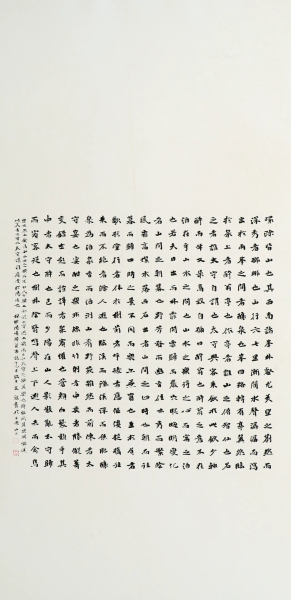 環滁皆山也其西南諸峰林壑尤美望之蔚然而
深秀者琅琊也山行六七里漸聞水聲潺潺而瀉
出於兩峰之間者釀泉也峰回路轉有亭翼然臨
於泉上者醉翁亭也作亭者誰山之僧智仙也名
之者誰太守自謂也太守與客來飲於此飲少輒
醉而年又最高故自號曰醉翁也醉翁之意不在
酒在乎山水之間也山水之樂得之心而寓之酒
也若夫日出而林霏開雲歸而巖穴暝晦明變化
者山間之朝暮也野芳發而幽香佳木秀而繁陰
風霜高潔水落而石出者山間之四時也朝而往
暮而歸四時之景不同而樂亦無窮也至於負者
歌於塗行者休於樹前者呼後者應傴僂提攜往
來而不絕者滁人遊也臨溪而漁溪深而魚肥釀
泉為酒泉香而酒洌山肴野蔌雜然而前陳者太
守宴也宴酣之樂非絲非竹射者中弈者勝觥籌
交錯坐起而諠譁者眾賓懽也蒼顏白髮頹乎其
中者太守醉也已而夕陽在山人影散亂太守歸
而賓客從也樹林陰翳鳴聲上下遊人去而禽鳥